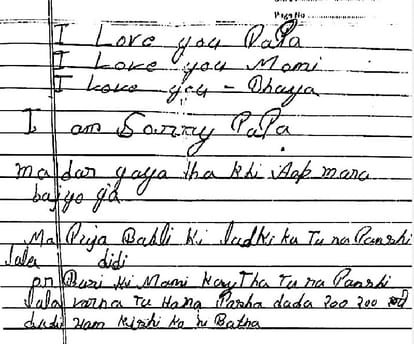 Page No
I Love you PaPa
I Love you Momi
I Love you - Bhaya
I am Sorry PaPa.
ma dar gaya tha khi Aap mara
bajyo ga
Ma Puja Bahli Ki ladki ku Tu na Panshi
lala didi
on Buri ki Mami Kay Tha Tu na Panshi
lala varna Tu Hana Parha dada 200 200
dudi Ham Kishi Ko hi Batha